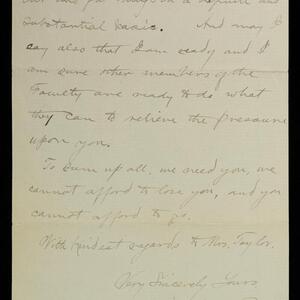 on a definite and
substantial basis. And may I
say also that I am ready and I
am sure other members of the
Faculty are ready to do what
they can to relieve the pressure
upon you.
To sum up all, we need you, we
cannot afford to lose you, and you
cannot afford to go.
With kindest regards to Mrs. Taylor.
Very Sincerely Yours,